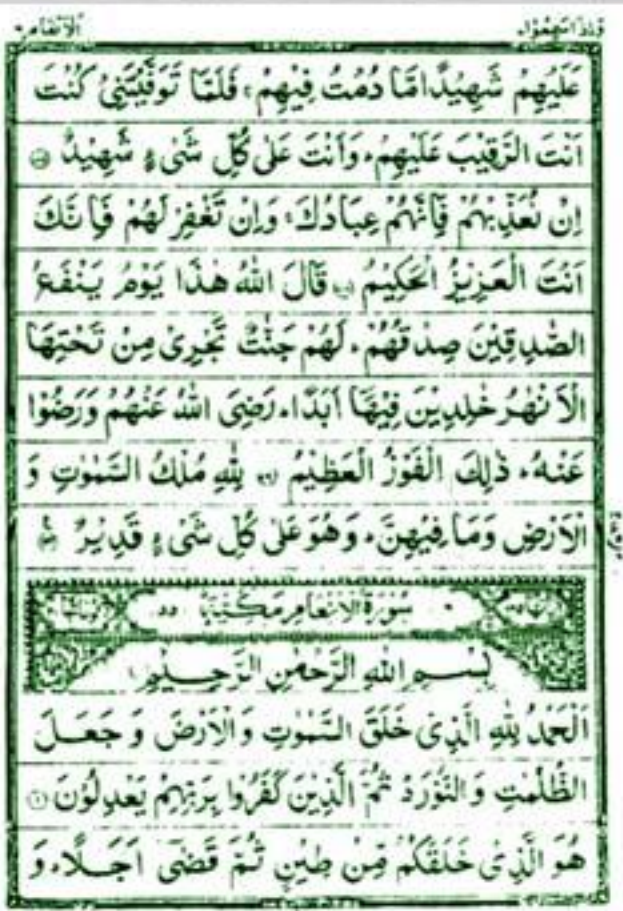 وَاِذَا سَمِعُوْا الْاَنْعَام ٦
عَلَيْهِمْ شَهِيْدًا مَّا دُمْتُ فِيْهِمْ ۚ فَلَمَّا تَوَفَّيْتَنِيْ كُنْتَ
اَنْتَ الرَّقِيْبَ عَلَيْهِمْ ۚ وَاَنْتَ عَلٰى كُلِّ شَيْءٍ شَهِيْدٌ
اِنْ تُعَذِّبْهُمْ فَاِنَّهُمْ عِبَادُكَ ۚ وَاِنْ تَغْفِرْ لَهُمْ فَاِنَّكَ
اَنْتَ الْعَزِيْزُ الْحَكِيْمُ قَالَ اللّٰهُ هٰذَا يَوْمُ يَنْفَعُ
الصّٰدِقِيْنَ صِدْقُهُمْ ۚ لَهُمْ جَنّٰتٌ تَجْرِيْ مِنْ تَحْتِهَا
الْاَنْهٰرُ خٰلِدِيْنَ فِيْهَآ اَبَدًا ۚ رَضِيَ اللّٰهُ عَنْهُمْ وَرَضُوْا
عَنْهُ ۚ ذٰلِكَ الْفَوْزُ الْعَظِيْمُ لِلّٰهِ مُلْكُ السَّمٰوٰتِ وَ
الْاَرْضِ وَمَا فِيْهِنَّ ۚ وَهُوَ عَلٰى كُلِّ شَيْءٍ قَدِيْرٌ
سُوْرَةُ الْاَنْعَامِ مَكِّيَّةٌ ٥٥
بِسْمِ اللّٰهِ الرَّحْمٰنِ الرَّحِيْمِ
اَلْحَمْدُ لِلّٰهِ الَّذِيْ خَلَقَ السَّمٰوٰتِ وَالْاَرْضَ وَجَعَلَ
الظُّلُمٰتِ وَالنُّوْرَ ۥ ثُمَّ الَّذِيْنَ كَفَرُوْا بِرَبِّهِمْ يَعْدِلُوْنَ ١
هُوَ الَّذِيْ خَلَقَكُمْ مِّنْ طِيْنٍ ثُمَّ قَضٰٓى اَجَلًا ۚ وَ